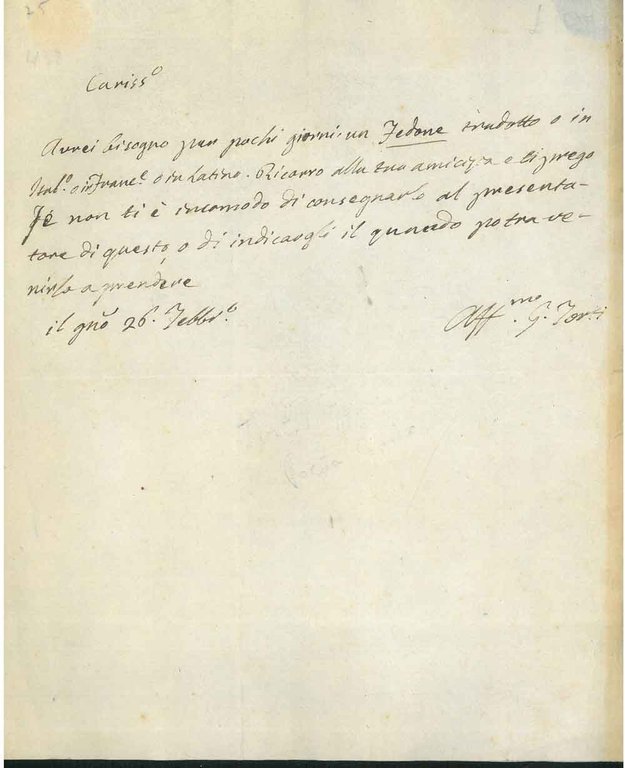 25
Cariss.o
Avrei bisogno per pochi giorni un Fedone tradotto o in
Ital.o o in Franc.e o in Latino. Ricorro alla tua amicizia e ti prego
se non ti è incomodo di consegnarlo al presenta-
tore di questo, o di indicargli il quando potra ve-
nirlo a prendere
il gno 26. Febbr.o
Aff.mo G. Torti